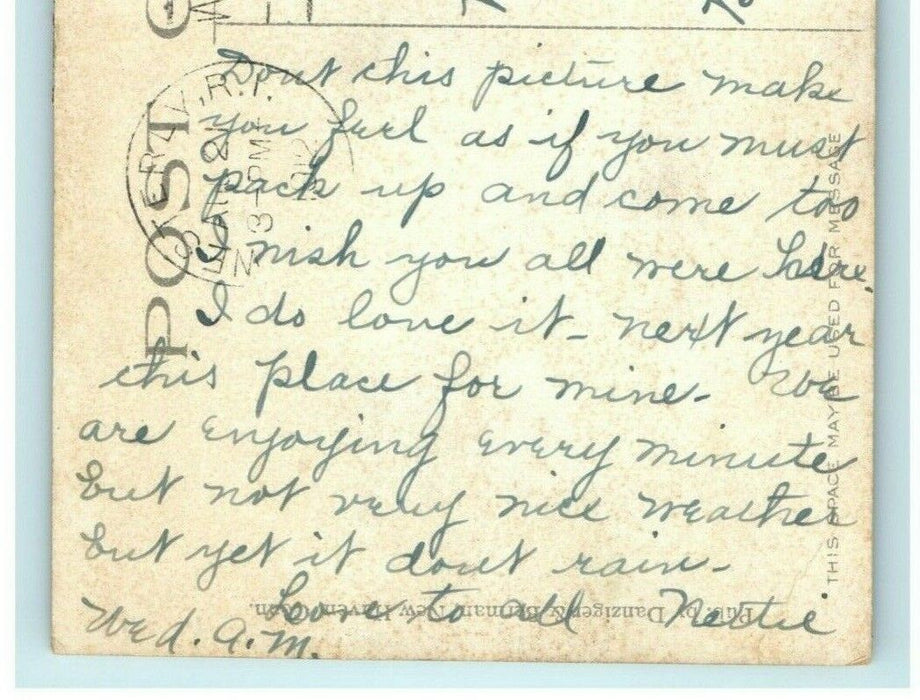 Dont this picture make
you feel as if you must
pack up and come too
I wish you all were here.
I do love it - next year
this place for mine - We
are enjoying every minute
but not very nice weather
but yet it dont rain -
Love to all Nettie
Wed. A.M.
POST
R.I.
JAN 2
3-PM
THIS SPACE MAY BE USED FOR MESSAGE
Pub. by Danziger & Berman, New Haven, Conn.